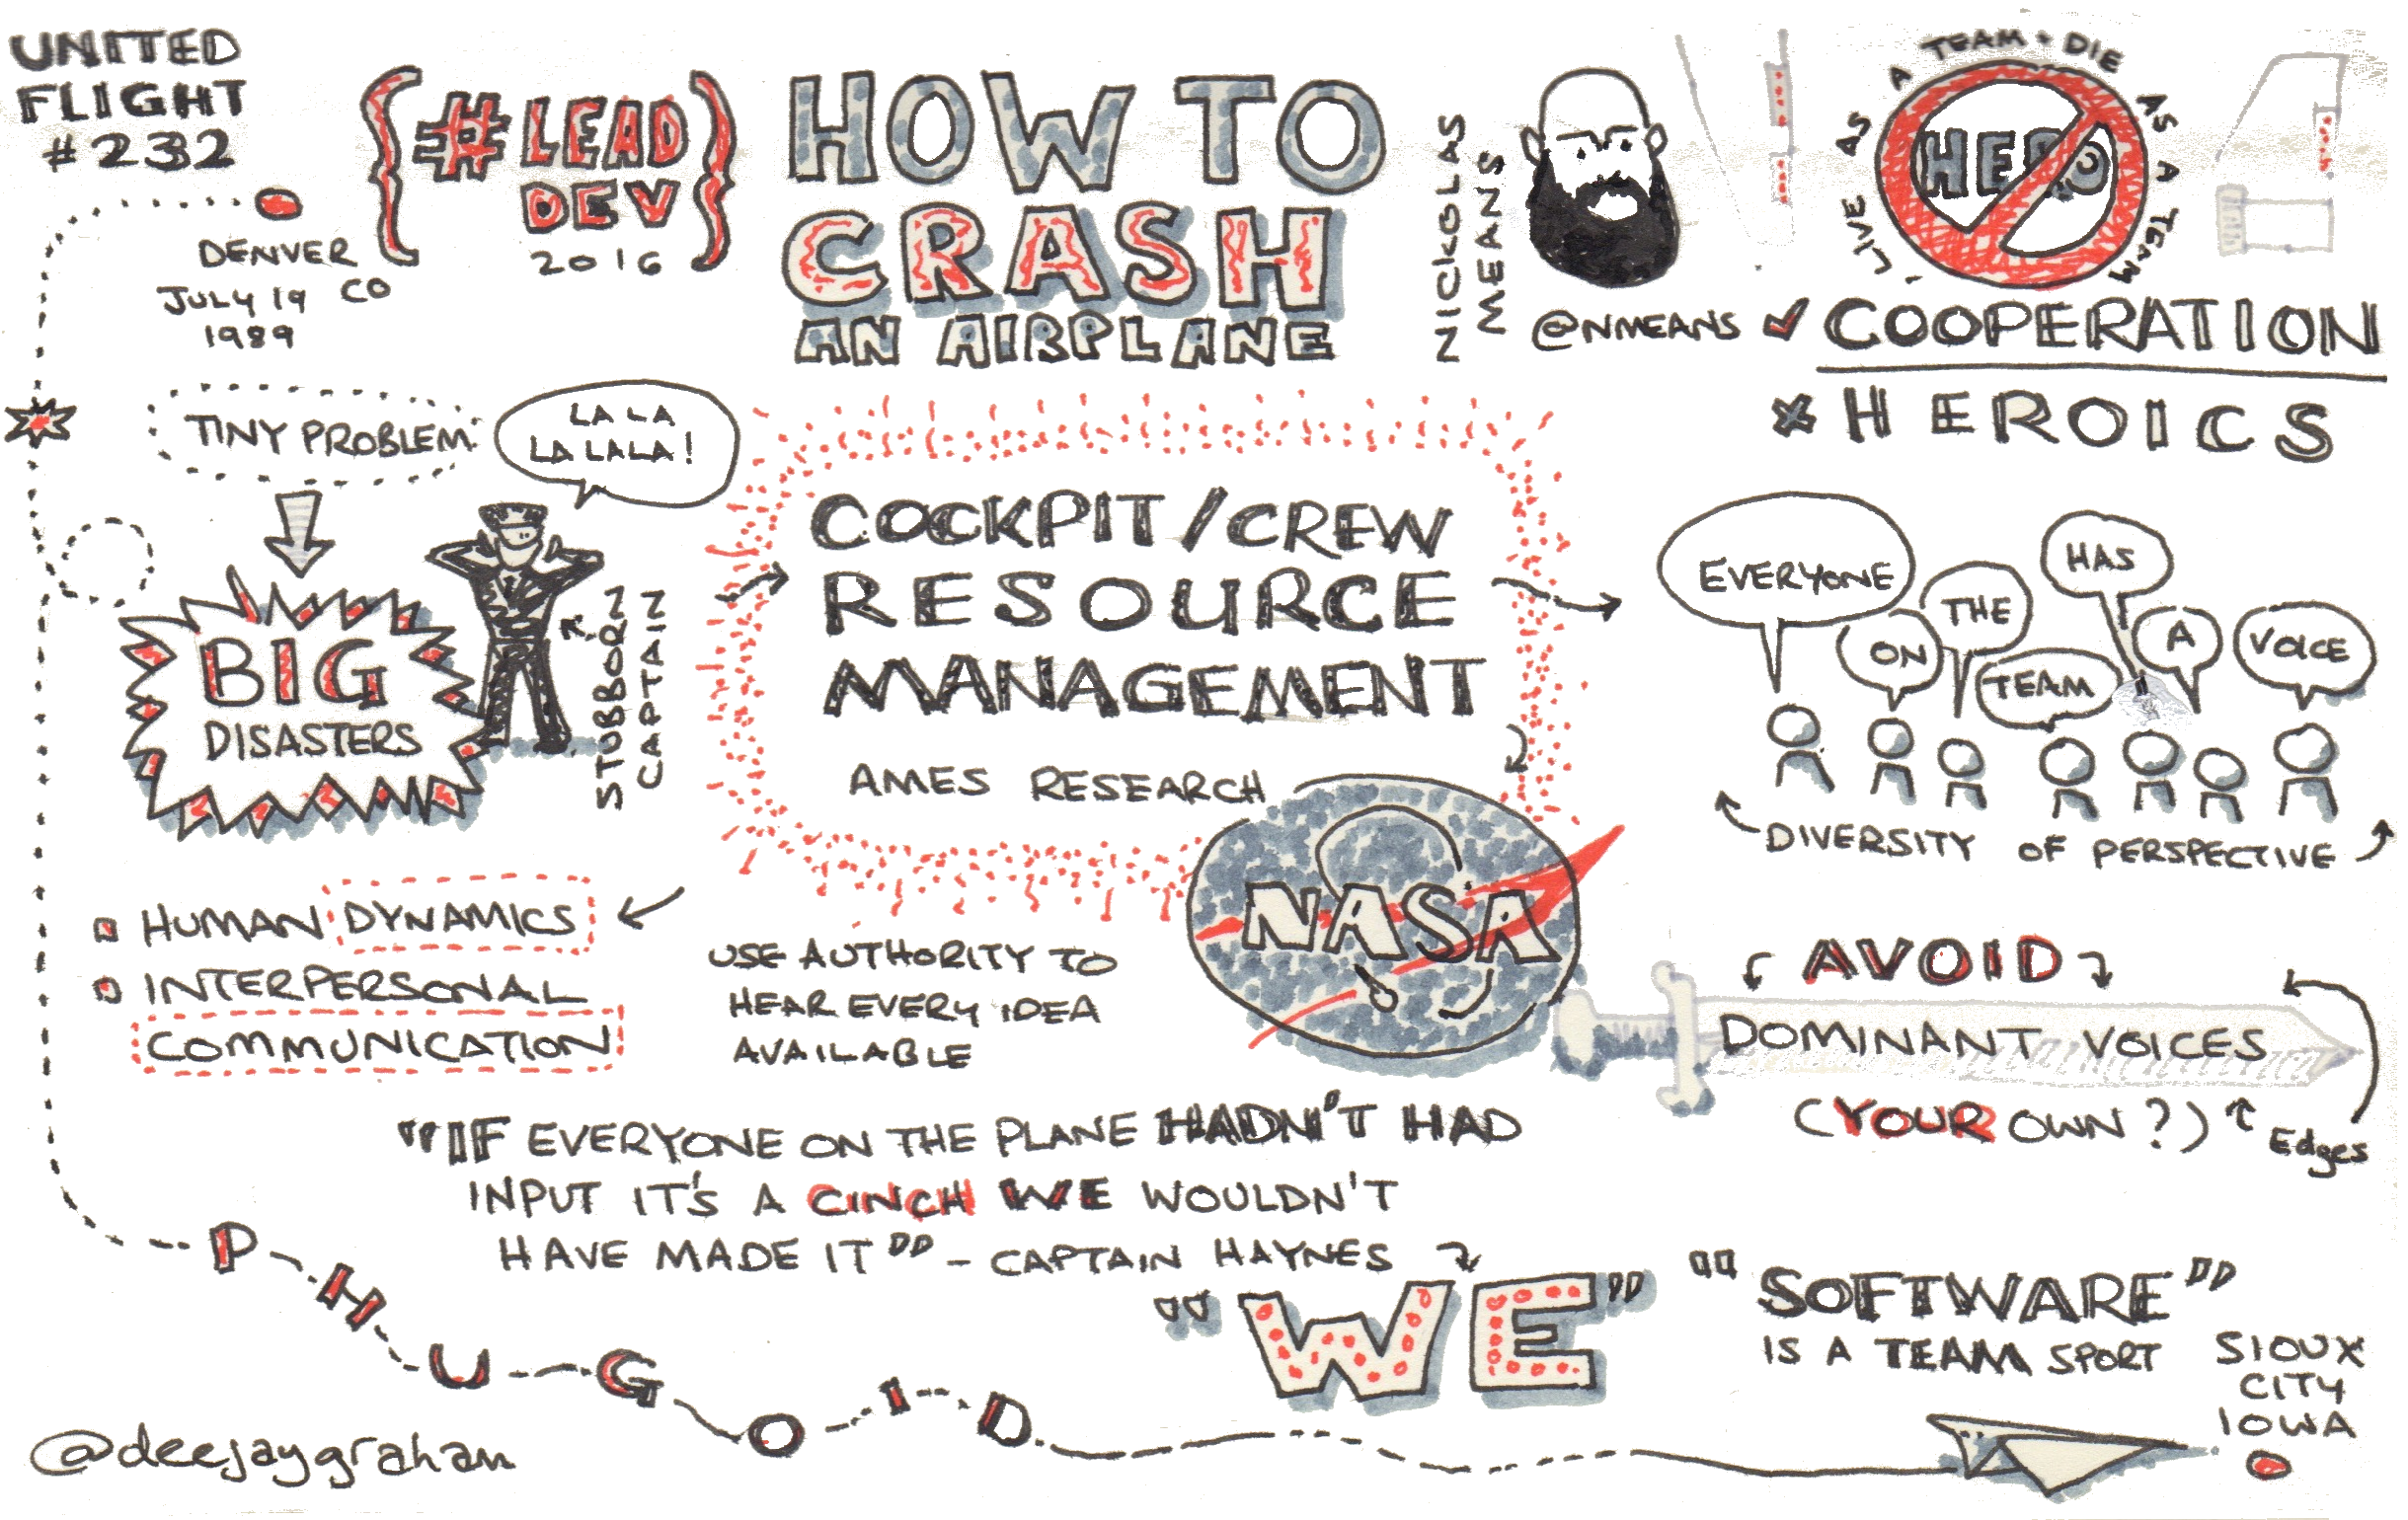 UNITED
FLIGHT
#232
DENVER
CO
JULY 19
1989
{#LEAD
DEV}
2016
HOW TO
CRASH
AN AIRPLANE
NICKOLAS
MEANS
@NMEANS
LIVE AS A TEAM + DIE AS A TEAM
HERO
✓ COOPERATION
× HEROICS
TINY PROBLEM
LA LA
LA LALA!
BIG
DISASTERS
STUBBORN
CAPTAIN
COCKPIT/CREW
RESOURCE
MANAGEMENT
AMES RESEARCH
NASA
EVERYONE
ON
THE
TEAM
HAS
A
VOICE
DIVERSITY OF PERSPECTIVE
HUMAN DYNAMICS
INTERPERSONAL
COMMUNICATION
USE AUTHORITY TO
HEAR EVERY IDEA
AVAILABLE
AVOID
DOMINANT VOICES
(YOUR OWN?)
Edges
"IF EVERYONE ON THE PLANE HADN'T HAD
INPUT IT'S A CINCH WE WOULDN'T
HAVE MADE IT" - CAPTAIN HAYNES
"WE"
"SOFTWARE"
IS A TEAM SPORT
PHUGOID
SIOUX
CITY
IOWA
@deejaygraham